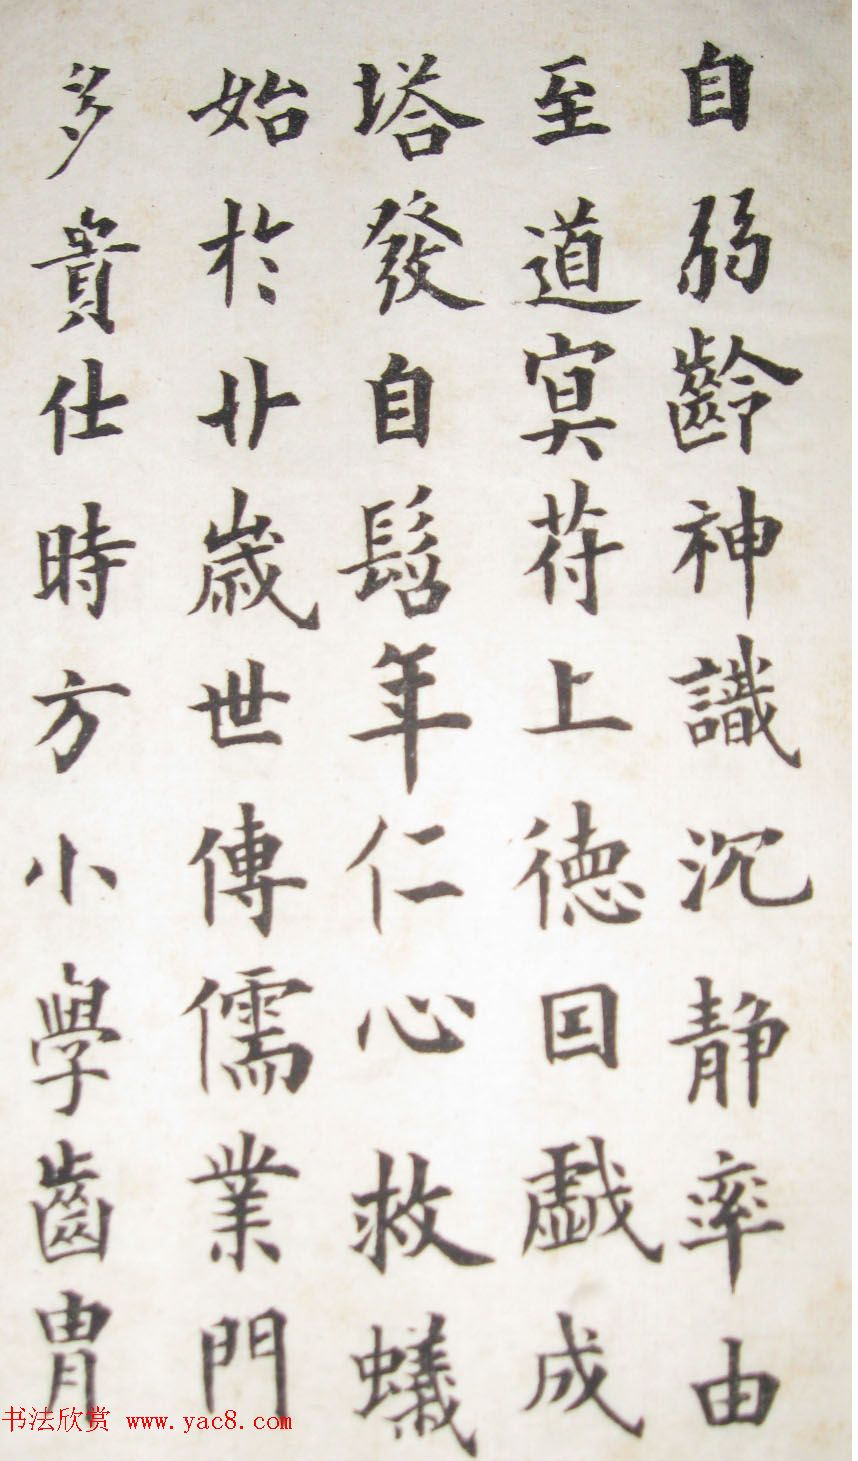 自弱齡神識沉静率由
至道冥苻上德因戲成
塔發自髫年仁心救蟻
始於廿歲世傳儒業門
多貴仕時方小學齒胄
书法欣赏 www.yac8.com